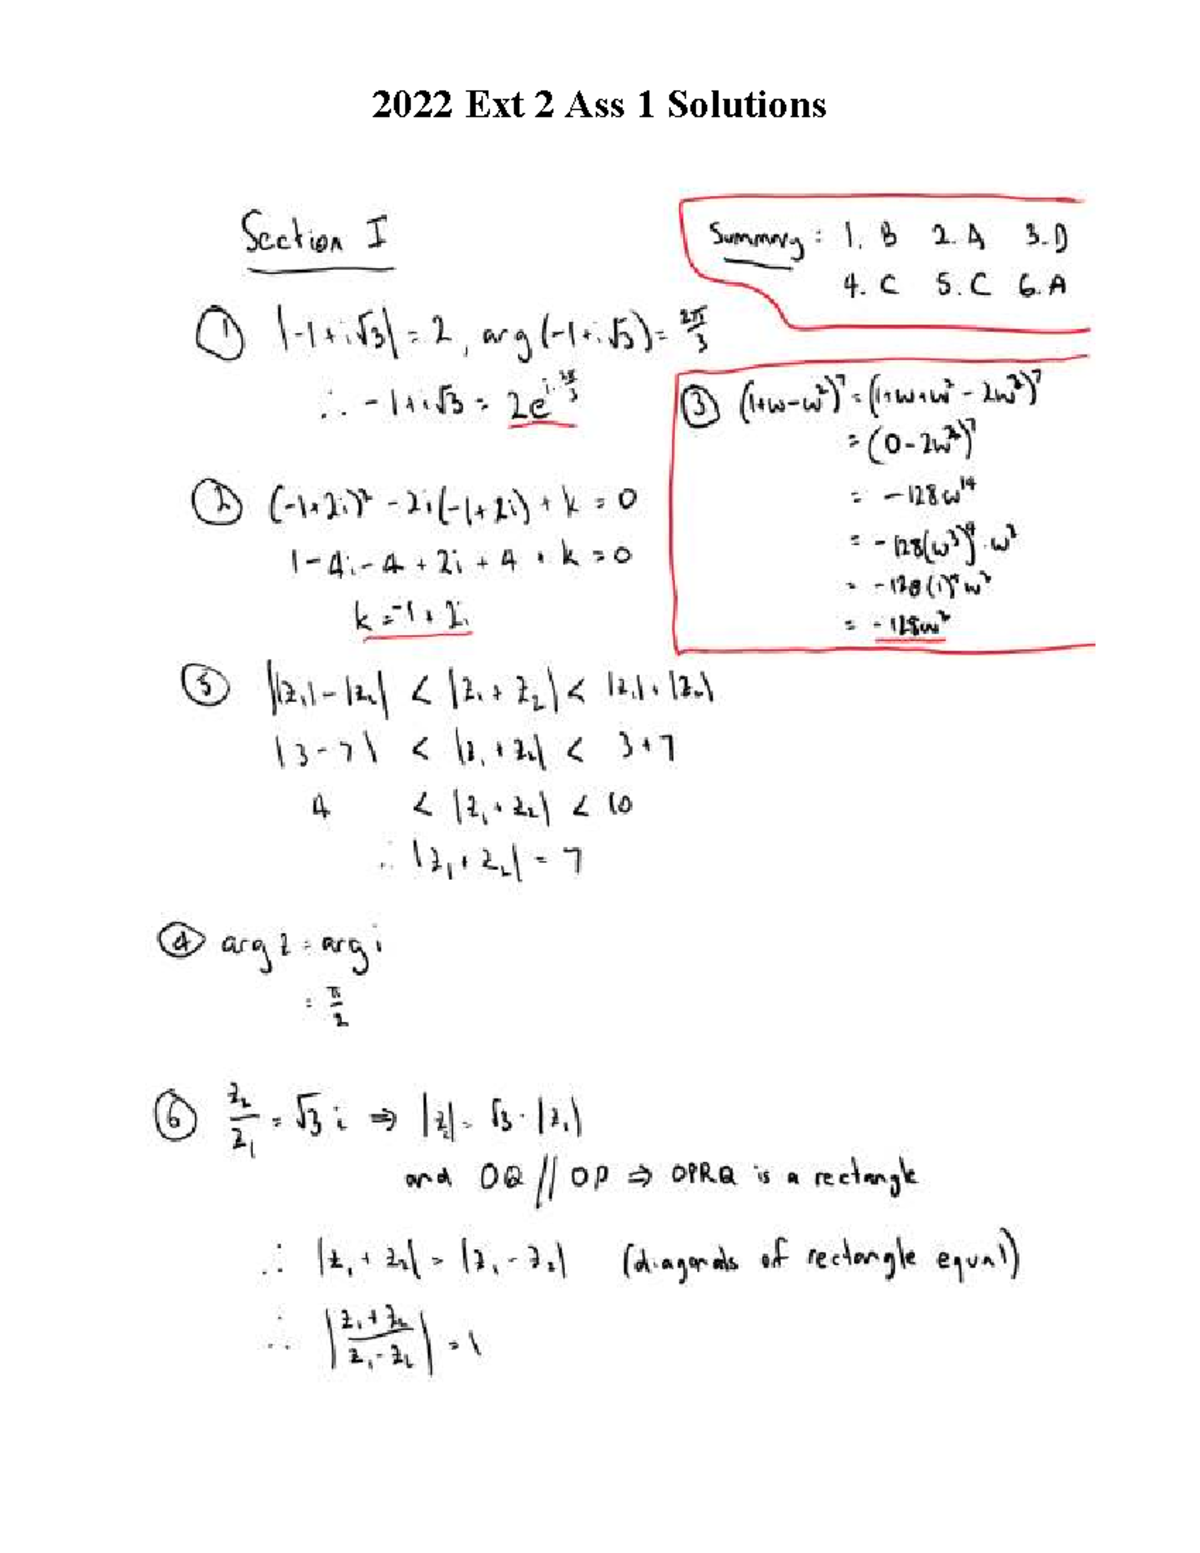 2022 Ext 2 Ass 1 Solutions
Section I
Summary: 1. B 2. A 3. D
4. C 5. C 6. A
① |-1+i√3| = 2, arg(-1+i√3) = 2π/3
∴ -1+i√3 = 2e^(i·2π/3)
② (-1+2i)² - 2i(-1+2i) + k = 0
1-4i-4+2i+4+k=0
k = -1+2i
③ (1+w-w²)⁷ = (1+w+w²-2w²)⁷
= (0-2w²)⁷
= -128w¹⁴
= -128(w³)⁴·w²
= -128(1)⁴w²
= -128w²
⑤ ||z₁|-|z₂|| < |z₁+z₂| < |z₁|+|z₂|
|3-7| < |z₁+z₂| < 3+7
4 < |z₁+z₂| < 10
∴ |z₁+z₂| = 7
④ arg z = arg i
= π/2
⑥ z₂/z₁ = √3 i ⇒ |z₂| = √3·|z₁|
and OQ // OP ⇒ OPRQ is a rectangle
∴ |z₁+z₂| = |z₁-z₂| (diagonals of rectangle equal)
∴ |(z₁+z₂)/(z₁-z₂)| = 1